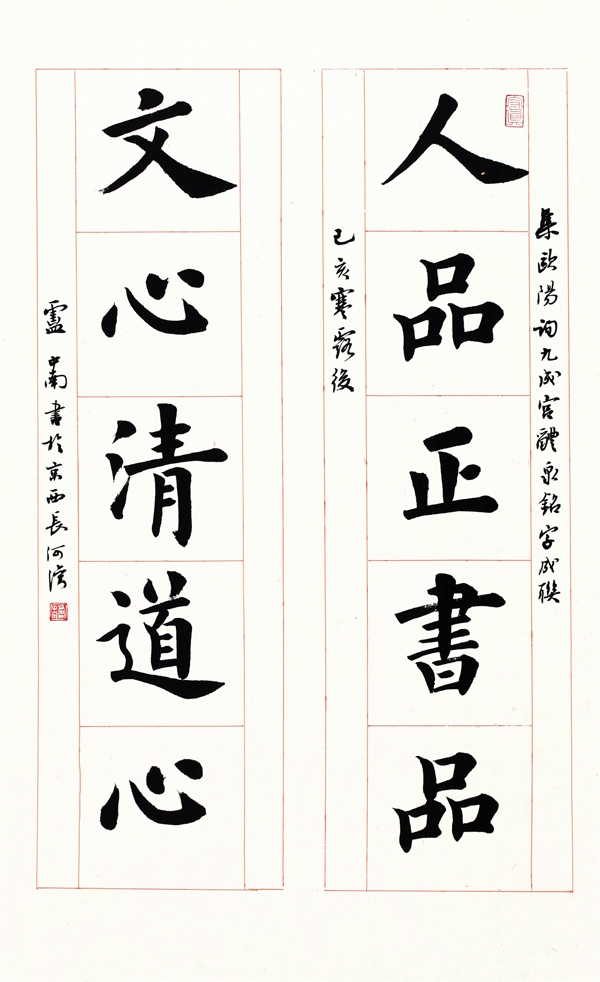 集歐陽詢九成宮醴泉銘字成聯
人品正書品
己亥寒露後
文心清道心
盧中南書於京西長河濱